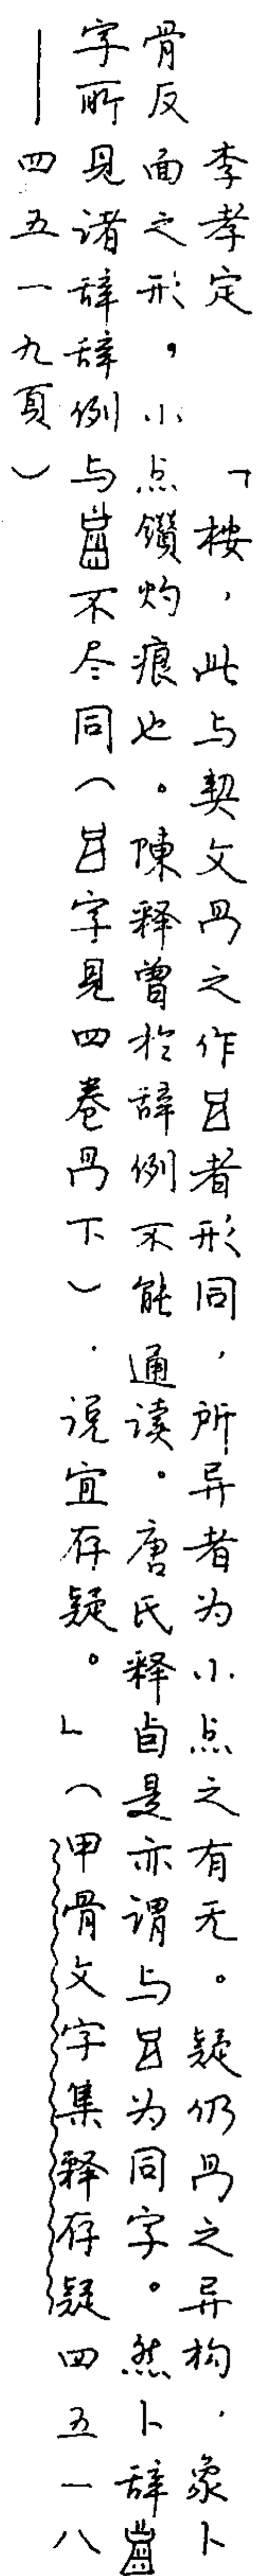 李孝定　「桉，此与契文冎之作者形同，所异者为小点之有无。疑仍冎之异构，象卜
骨反面之形，小点鑽灼痕也。陳释曾於辞例不能通读。唐氏释卣是亦谓与为同字。然卜辞
字所見诸辞辞例与不尽同（字見四卷冎下），说宜存疑。」（甲骨文字集释存疑四五一八
——四五一九頁）